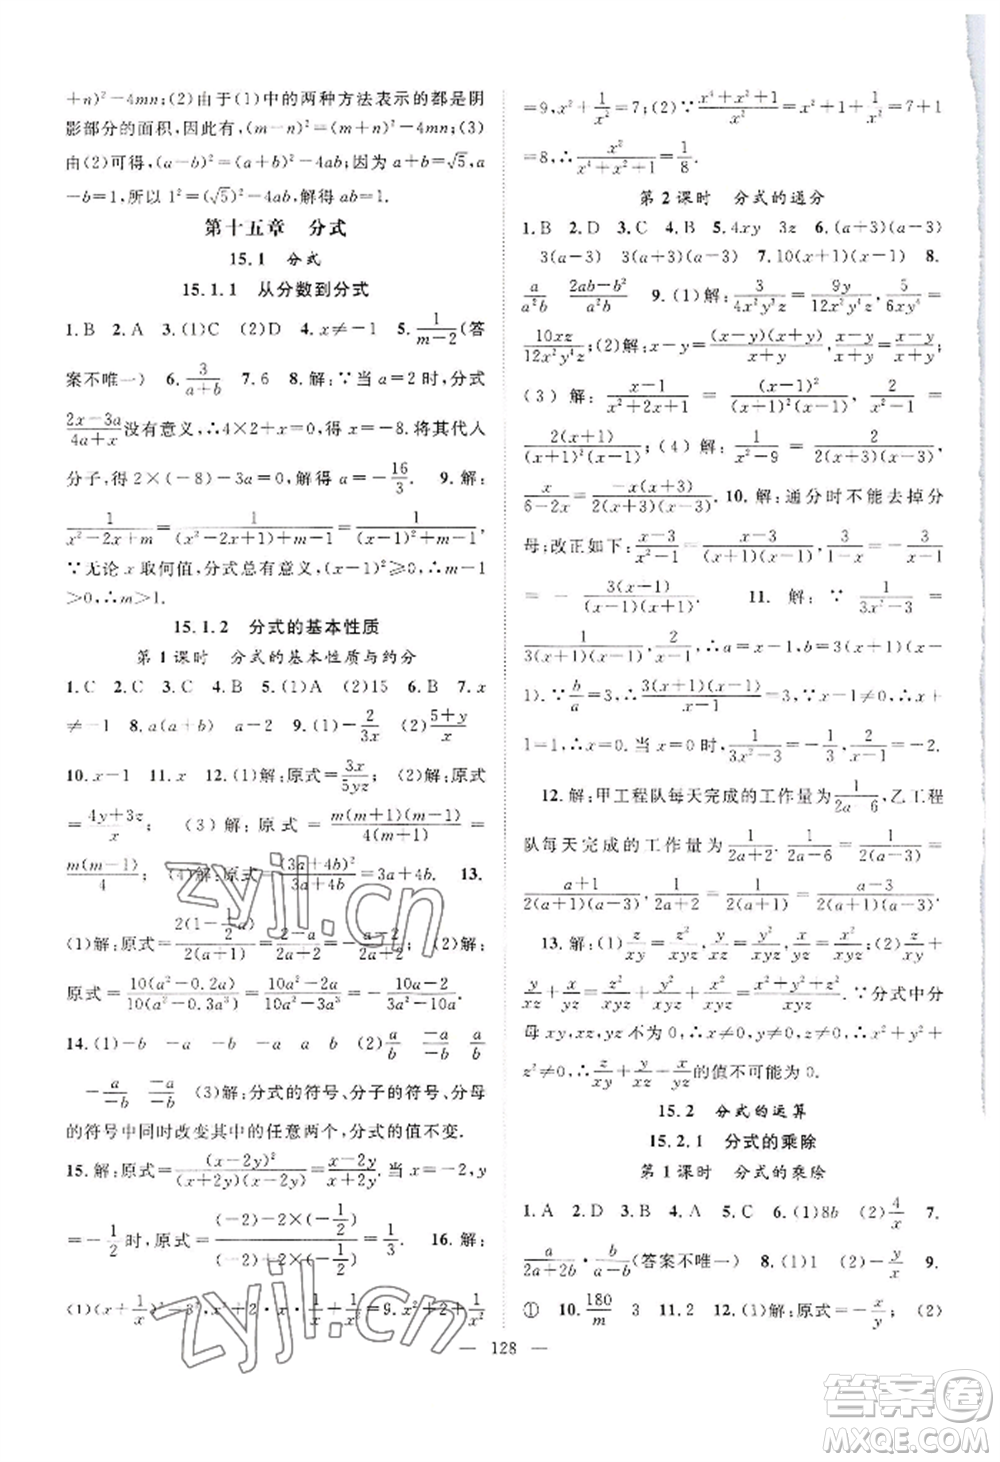 +n)²-4mn;(2)由于(1)中的两种方法表示的都是阴
影部分的面积,因此有,(m-n)²=(m+n)²-4mn;(3)
由(2)可得,(a-b)²=(a+b)²-4ab;因为a+b=√5,a
-b=1,所以1²=(√5)²-4ab,解得ab=1.
第十五章 分式
15.1 分式
15.1.1 从分数到分式
1.B 2.A 3.(1)C (2)D 4.x≠-1 5.1/(m-2)(答
案不唯一) 6.3/(a+b) 7.6 8.解:∵当a=2时,分式
(2x-3a)/(4a+x)没有意义,∴4×2+x=0,∴x=-8.将其代入
分子,得2×(-8)-3a=0,解得a=-16/3. 9.解:
1/(x²-2x+m)=1/((x²-2x+1)+m-1)=1/((x-1)²+m-1),
∵无论x取何值,分式总有意义,(x-1)²≥0,∴m-1
>0,∴m>1.
15.1.2 分式的基本性质
第1课时 分式的基本性质与约分
1.C 2.C 3.A 4.C 5.(1)A (2)15 6.B 7.x
≠-1 8.a(a+b) a-2 9.(1)-2/(3x) (2)(5+y)/x
10.x-1 11.x 12.(1)解:原式=3x/(5yz) (2)解:原式
=(4y+3z)/x; (3)解:原式=m(m+1)(m-1)/(4(m+1))=
m(m-1)/4;(4)解:原式=(3a+4b)²/(3a+4b)=3a+4b. 13.
(1)解:原式=2(1-1/2a)/=(2-a)/=-(a-2)/; (2)解:
原式=10(a²-0.2a)/(10(a²-0.3a³))=(10a²-2a)/(10a²-3a³)=-(10a-2)/(3a²-10a).
14.(1)-b -a -a a (2)a/b (-a)/(-b)
-a/(-b) -(-a)/b (3)解:分式的符号、分子的符号、分母
的符号中同时改变其中的任意两个,分式的值不变.
15.解:原式=(x-2y)²/((x+2y)(x-2y))=(x-2y)/(x+2y).当x=-2,y
=-1/2时,原式=((-2)-2×(-1/2))/((-2)+2×(-1/2))=1/3. 16.解:
(1)(x+1/x)²=3²,x²+2·x·1/x+1/x²=9.x²+2+1/x²
=9,x²+1/x²=7;(2)∵(x⁴+x²+1)/x²=x²+1+1/x²=7+1
=8,∴x²/(x⁴+x²+1)=1/8.
第2课时 分式的通分
1.B 2.D 3.C 4.B 5.4xy 3z 6.(a+3)(a-3)
3(a-3) (a+3)(a-3) 7.10(x+1)(x-1) 8.
a/(a²b) (2ab-b²)/(a²b) 9.(1)解:3/(4x²y³z)=9y/(12x²y⁴z),5/(6xy⁴)=
10xz/(12x²y⁴z);(2)解:x-y=(x-y)(x+y)/(x+y);
(3)解:(x-1)/(x²+2x+1)=(x-1)²/((x+1)²(x-1)),2/(x²-1)=
2(x+1)/((x+1)²(x-1));(4)解:1/(x²-9)=2/(2(x+3)(x-3)),
x/(6-2x)=-x(x+3)/(2(x+3)(x-3)). 10.解:通分时不能去掉分
母;改正如下:(x-3)/(x²-1)=(x-3)/((x+1)(x-1)),-3/(x-1)
=-3(x+1)/((x+1)(x-1)). 11.解:∵1/(3x²-3)=
1/(3(x+1)(x-1)),a/(x-1),∴a=x-1,b=3(x+1)(x-
1).∵b/a=3(x+1)(x-1)/(x-1)=3(x+1),∴x+
1=1,∴x=0.当x=0时,1/(3x²-3)=-1/3,2/(x-1)=-2.
12.解:甲工程队每天完成的工作量为1/(2a-6),乙工程
队每天完成的工作量为1/(2a+2).1/(2a-6)=
(a+1)/(2(a+1)(a-3)),1/(2a+2)=(a-3)/(2(a+1)(a-3)).
13.解:(1)z/(xy)=z²/(xyz),y/(xz)=y²/(xyz),x/(yz)=x²/(xyz);(2)z/(xy)+
y/(xz)+x/(yz)=z²/(xyz)+y²/(xyz)+x²/(xyz)=(x²+y²+z²)/(xyz).∵分式中分
母xy,xz,yz不为0,∴x≠0,y≠0,z≠0,∴x²+y²+
z²≠0,∴z/(xy)+y/(xz)+x/(yz)的值不可能为0.
15.2 分式的运算
15.2.1 分式的乘除
第1课时 分式的乘除
1.A 2.D 3.B 4.A 5.A 6.(1)8b (2)4/x 7.
a/(2a+2b)·b/(a-b)(答案不唯一) 8.(1)1 (2)-y/x 9.
① 10.180/m 3 11.2 12.(1)解:原式=-x/y; (2)
— 128 —
zyjl.cn
答案圈
MXQE.COM